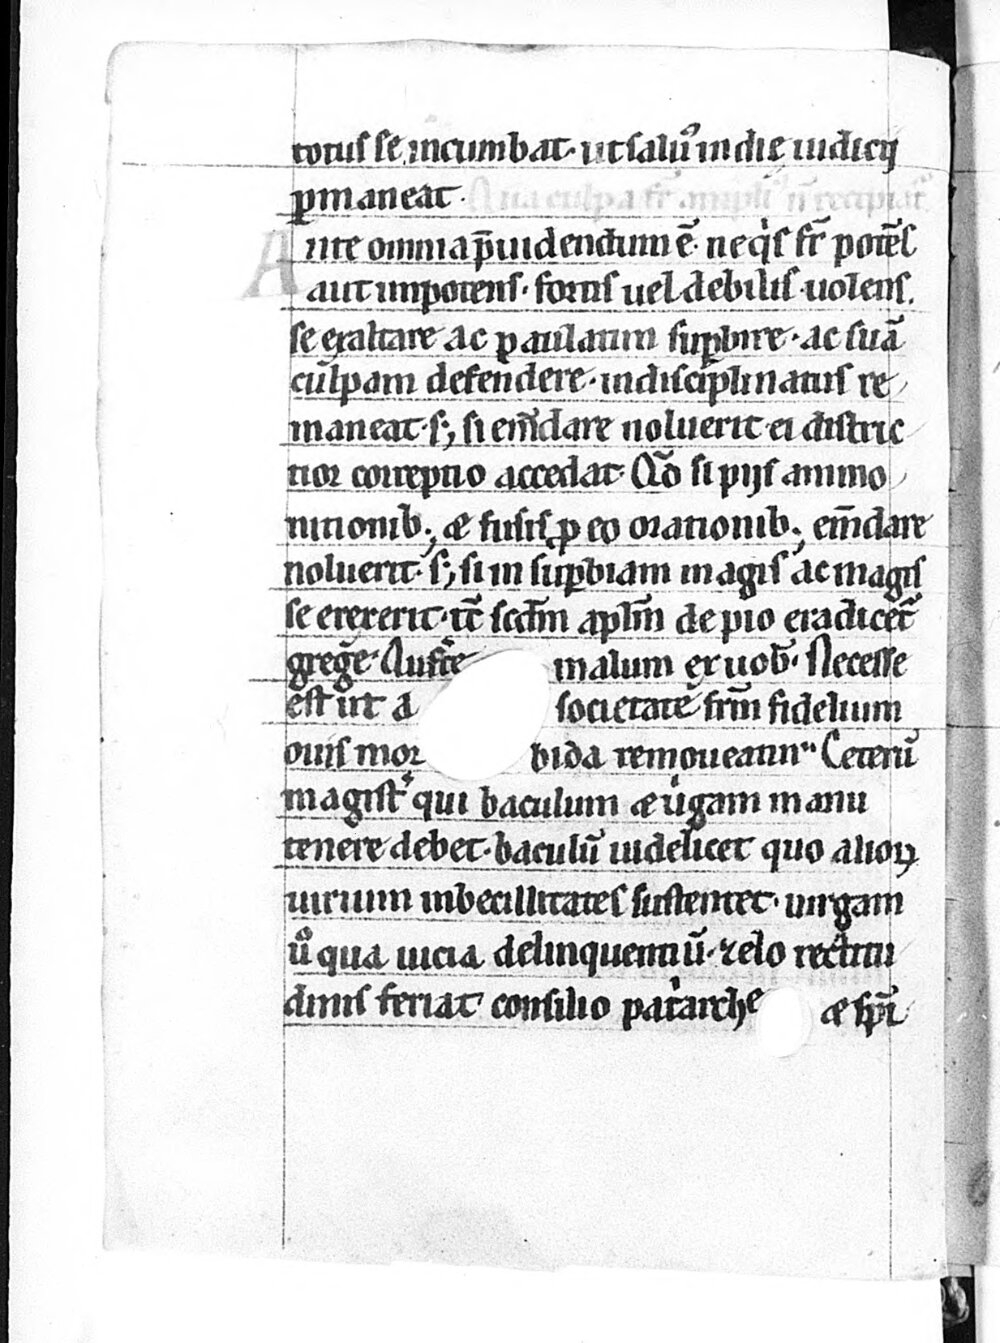 totus se incumbat· ut saluꝰ in die iudicij
ꝑmaneat· Qua culpa fr̄ ampliꝰ n̄ recipiat᷑
Ante omnia p̄uidendum ē· ne qͥs fr̄ potēs
aut impotens· fortis uel debilis· uolens.
se exaltare ac paulatim suꝑbire· ac suā
culpam defendere· indisciplinatus re
maneat· s; si em̄dare noluerit· ei distric
tior correptio accedat· Qd̄ si pijs ammo
nitionib; æ fusis ꝑ eo orationib; em̄dare
noluerit· s; si in suꝑbiam magis ac magis
se erexerit· tc̄ scdm̄ aplm̄ de pio eradicet᷑
grege· Auferte malum ex uob̄· Necesse
est ut a societate fr̄m fidelium
ouis morbida remoueatur· Ceterū
magistͬ qui baculum æ uͥgam manu
tenere debet· baculū uidelicet quo alioꝝ
uirium inbecillitates sustentet· uirgam
uͦ qua uicia delinquentiū· zelo rectitu
dinis feriat consilio patͥarche æ sp̄i